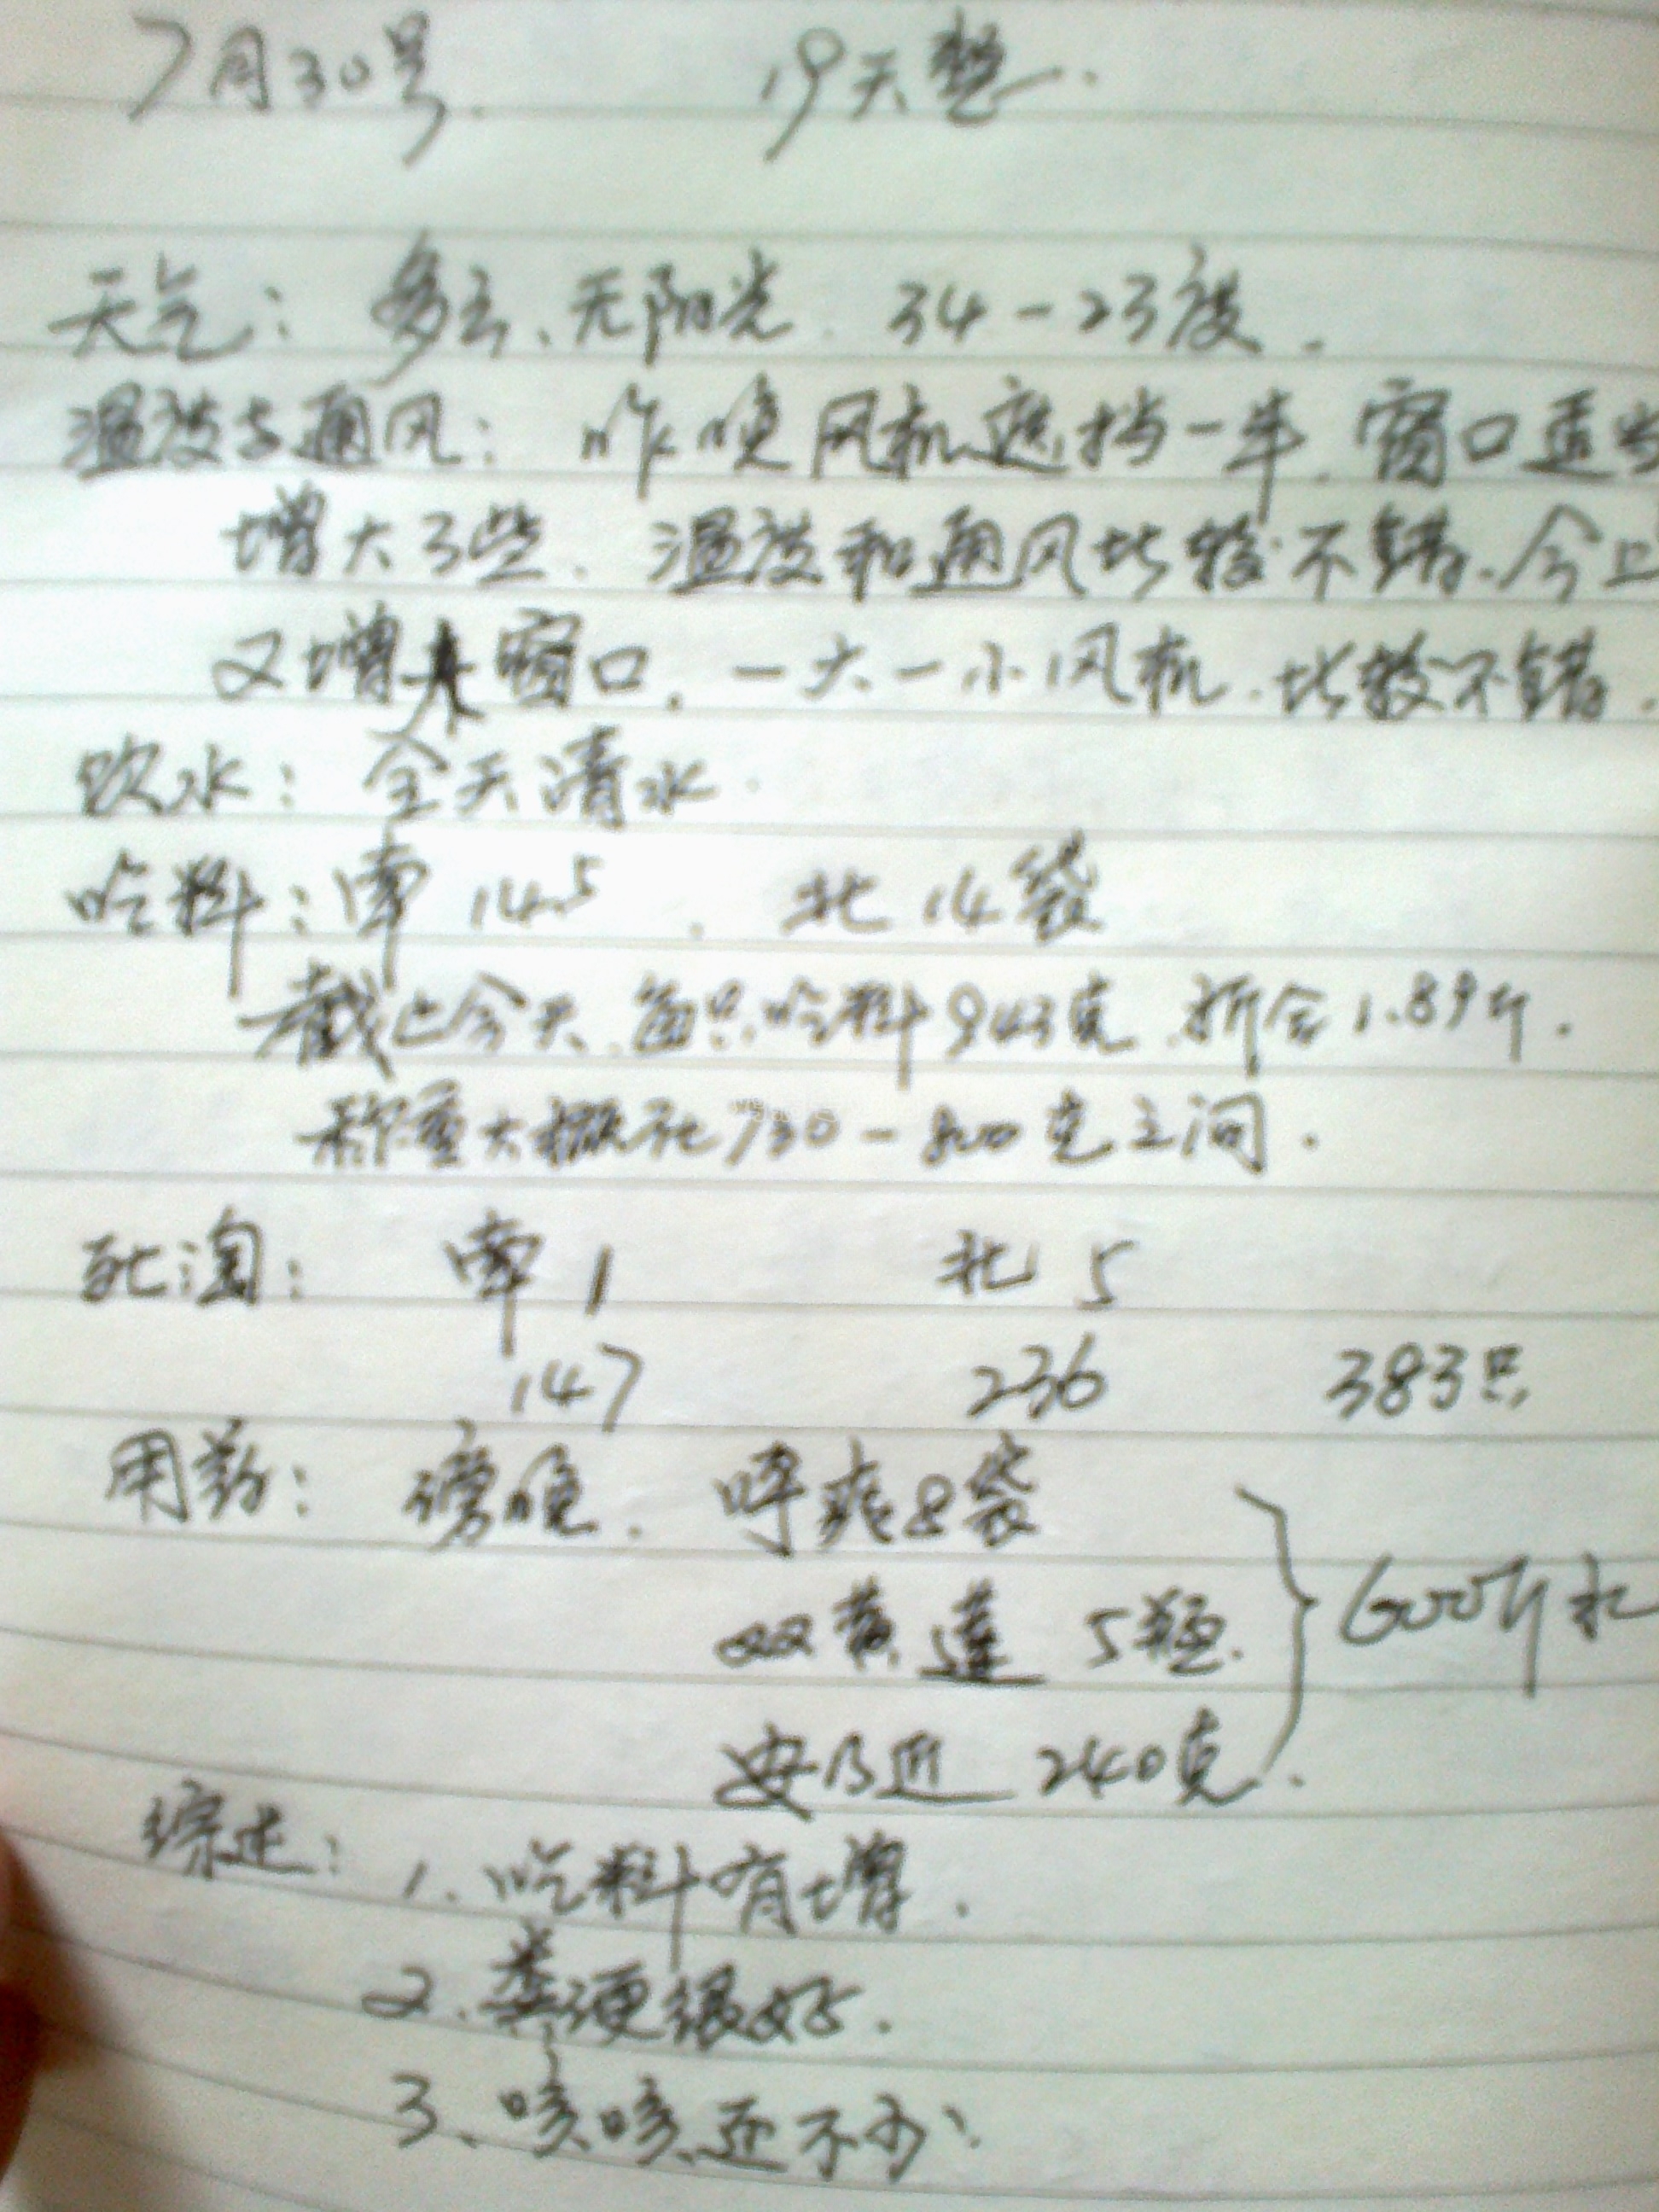 7月30号. 19天整.
天气: 多云、无阳光. 34-23度.
温度与通风: 昨晚风机遮挡一半. 窗口适当
增大了些、温度和通风比较不错. 今早
又增大窗口. 一大一小风机. 比较不错.
饮水: 全天清水.
吃料: 南 14.5 . 北 14袋
截止今天. 每只吃料943克. 折合1.89斤.
称重大概在730-800克之间.
死淘: 南 1 北 5
147 236 383只
用药: 傍晚. 呼爽8袋
双黄莲 5瓶. 600斤水
安乃近 240克.
综述: 1. 吃料有增.
2. 粪便很好.
3、咳咳还不少;